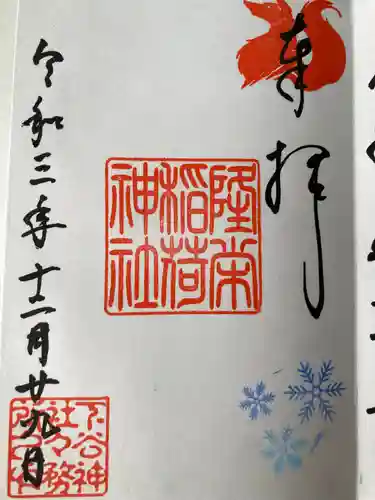 奉拝
隆栄
稲荷
神社
令和三年十二月廿九日
下谷神
社々務